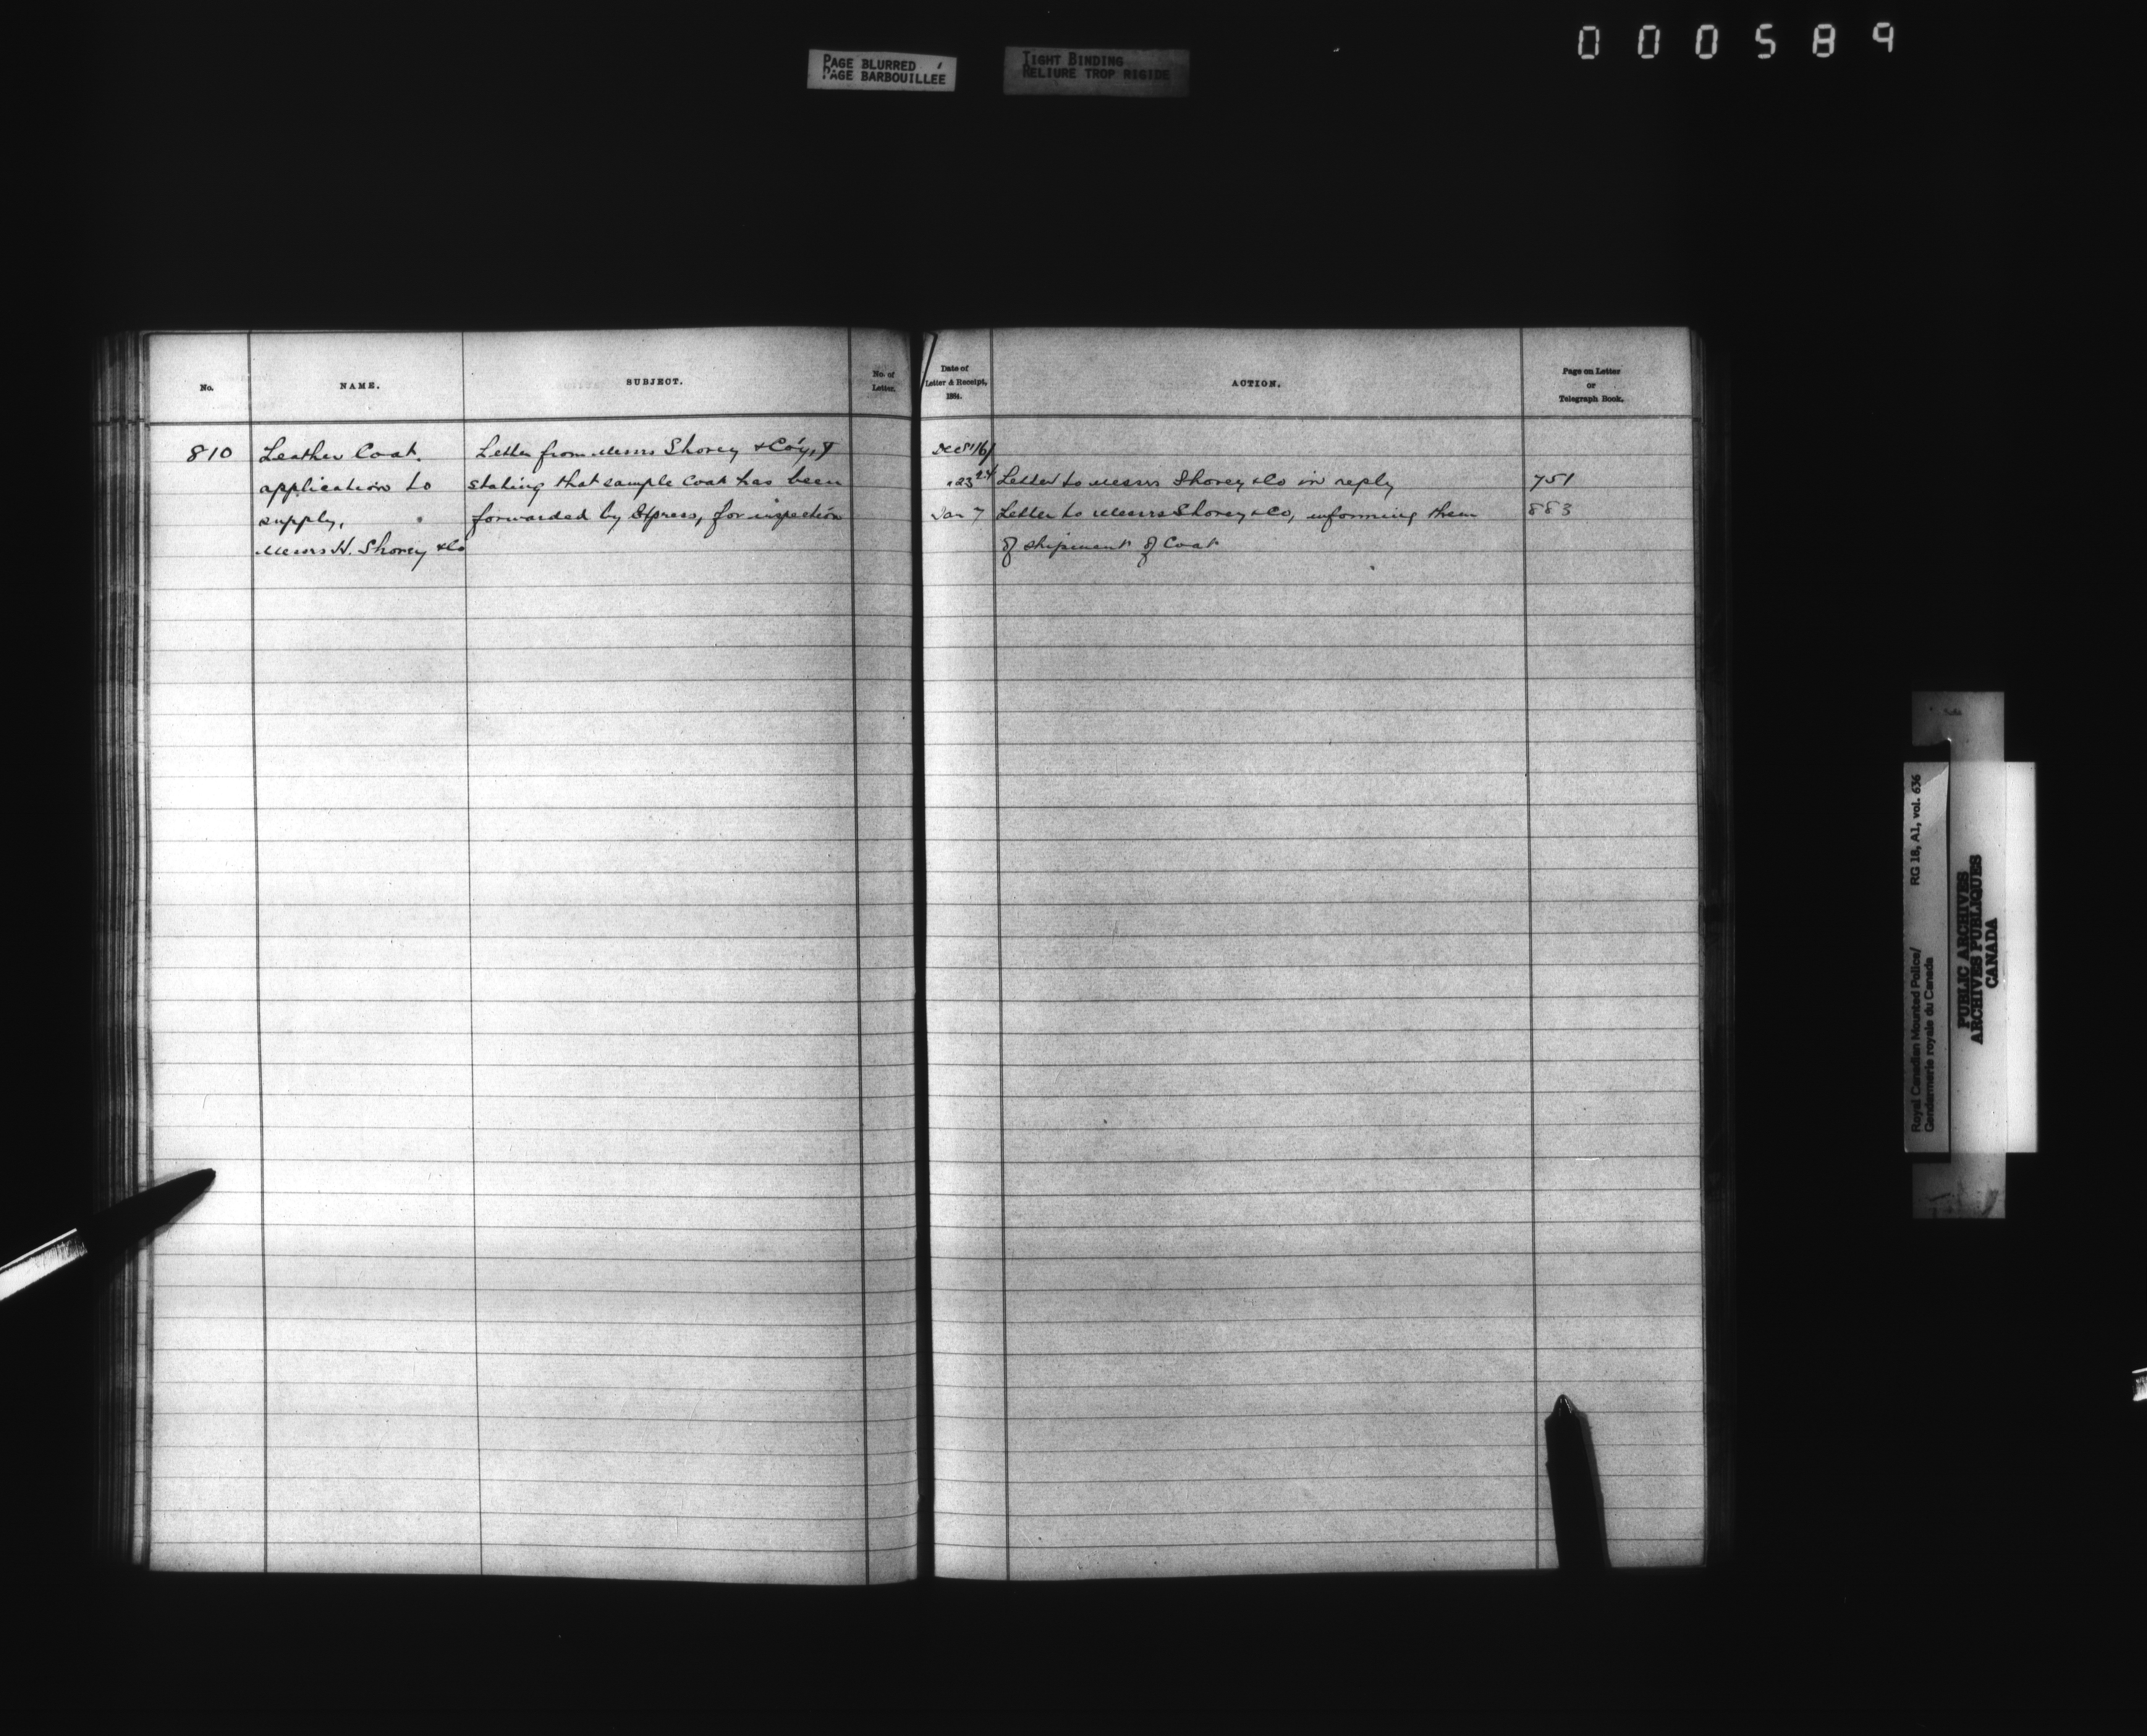 000589
PAGE BLURRED
PAGE BARBOUILLÉE
TIGHT BINDING
RELIURE TROP RIGIDE
No.
NAME.
SUBJECT.
No. of
Letter.
Date of
Letter & Receipt,
1884.
ACTION.
Page on Letter
or
Telegraph Book.
810
Leather Coat.
application to
supply.
Messrs H. Shorey & Co
Letter from Messrs Shorey & Co'y,
stating that sample Coat has been
forwarded by Express, for inspection
Dec
23 24 Letter to Messrs Shorey & Co in reply 751
Jan 7 Letter to Messrs Shorey & Co, informing them 883
of shipment of Coat
Royal Canadian Mounted Police/
Gendarmerie royale du Canada
RG 18, A1, vol. 636
PUBLIC ARCHIVES
ARCHIVES PUBLIQUES
CANADA